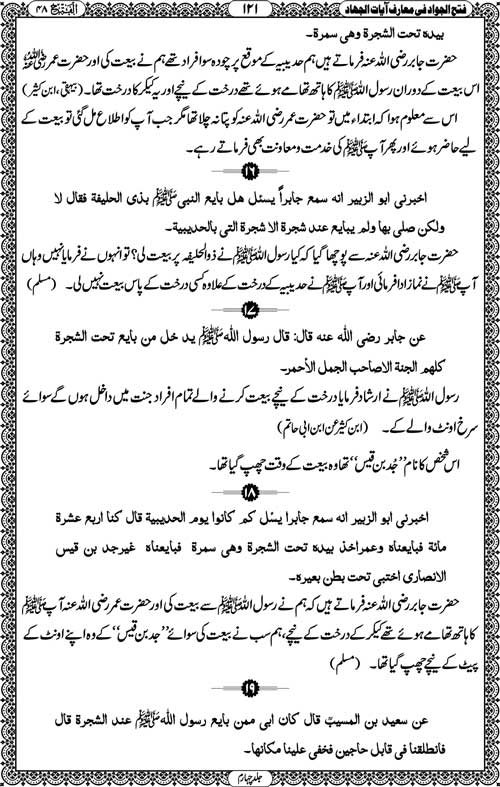 فتح الجواد فی معارف آیات الجهاد ۱۲۱ الفتح ۴۸
بيده تحت الشجرة وهى سمرة۔
حضرت جابر رضی اللہ عنہ فرماتے ہیں ہم حدیبیہ کے موقع پر چودہ سو افراد تھے ہم نے بیعت کی اور حضرت عمر رضی اللہ عنہ
اس بیعت کے دوران رسول اللہ ﷺ کا ہاتھ تھامے ہوئے تھے درخت کے نیچے اور یہ کیکر کا درخت تھا۔ (بیہقی، ابن کثیر)
اس سے معلوم ہوا کہ ابتداء میں تو حضرت عمر رضی اللہ عنہ کو پتا نہ چلا تھا مگر جب آپ کو اطلاع مل گئی تو بیعت کے
لیے حاضر ہوئے اور پھر آپ ﷺ کی خدمت و معاونت بھی فرماتے رہے۔
۱۶
اخبرنى ابو الزبير انه سمع جابراً يسئل هل بايع النبى ﷺ بذى الحليفة فقال لا
ولكن صلى بها ولم يبايع عند شجرة الا شجرة التى بالحديبية۔
حضرت جابر رضی اللہ عنہ سے پوچھا گیا کہ کیا رسول اللہ ﷺ نے ذوالحلیفہ پر بیعت لی؟ تو انہوں نے فرمایا نہیں وہاں
آپ ﷺ نے نماز ادا فرمائی اور آپ ﷺ نے حدیبیہ کے درخت کے علاوہ کسی درخت کے پاس بیعت نہیں لی۔ (مسلم)
۱۷
عن جابر رضى الله عنه قال: قال رسول الله ﷺ يد خل من بايع تحت الشجرة
كلهم الجنة الاصاحب الجمل الأحمر۔
رسول اللہ ﷺ نے ارشاد فرمایا درخت کے نیچے بیعت کرنے والے تمام افراد جنت میں داخل ہوں گے سوائے
سرخ اونٹ والے کے۔ (ابن کثیر عن ابن ابی حاتم)
اس شخص کا نام ”جُد بن قیس“ تھا وہ بیعت کے وقت چھپ گیا تھا۔
۱۸
اخبرنى ابو الزبير انه سمع جابرا يسْل كم كانوا يوم الحديبية قال كنا اربع عشرة
مائة فبايعناه وعمراخذ بيده تحت الشجرة وهى سمرة فبايعناه غيرجد بن قيس
الانصارى اختبى تحت بطن بعيره۔
حضرت جابر رضی اللہ عنہ فرماتے ہیں کہ ہم نے رسول اللہ ﷺ سے بیعت کی اور حضرت عمر رضی اللہ عنہ آپ ﷺ
کا ہاتھ تھامے ہوئے تھے کیکر کے درخت کے نیچے، ہم سب نے بیعت کی سوائے ”جد بن قیس“ کے وہ اپنے اونٹ کے
پیٹ کے نیچے چھپ گیا تھا۔ (مسلم)
۱۹
عن سعيد بن المسيبّ قال كان ابى ممن بايع رسول الله ﷺ عند الشجرة قال
فانطلقنا فى قابل حاجين فخفى علينا مكانها۔
جلد چہارم